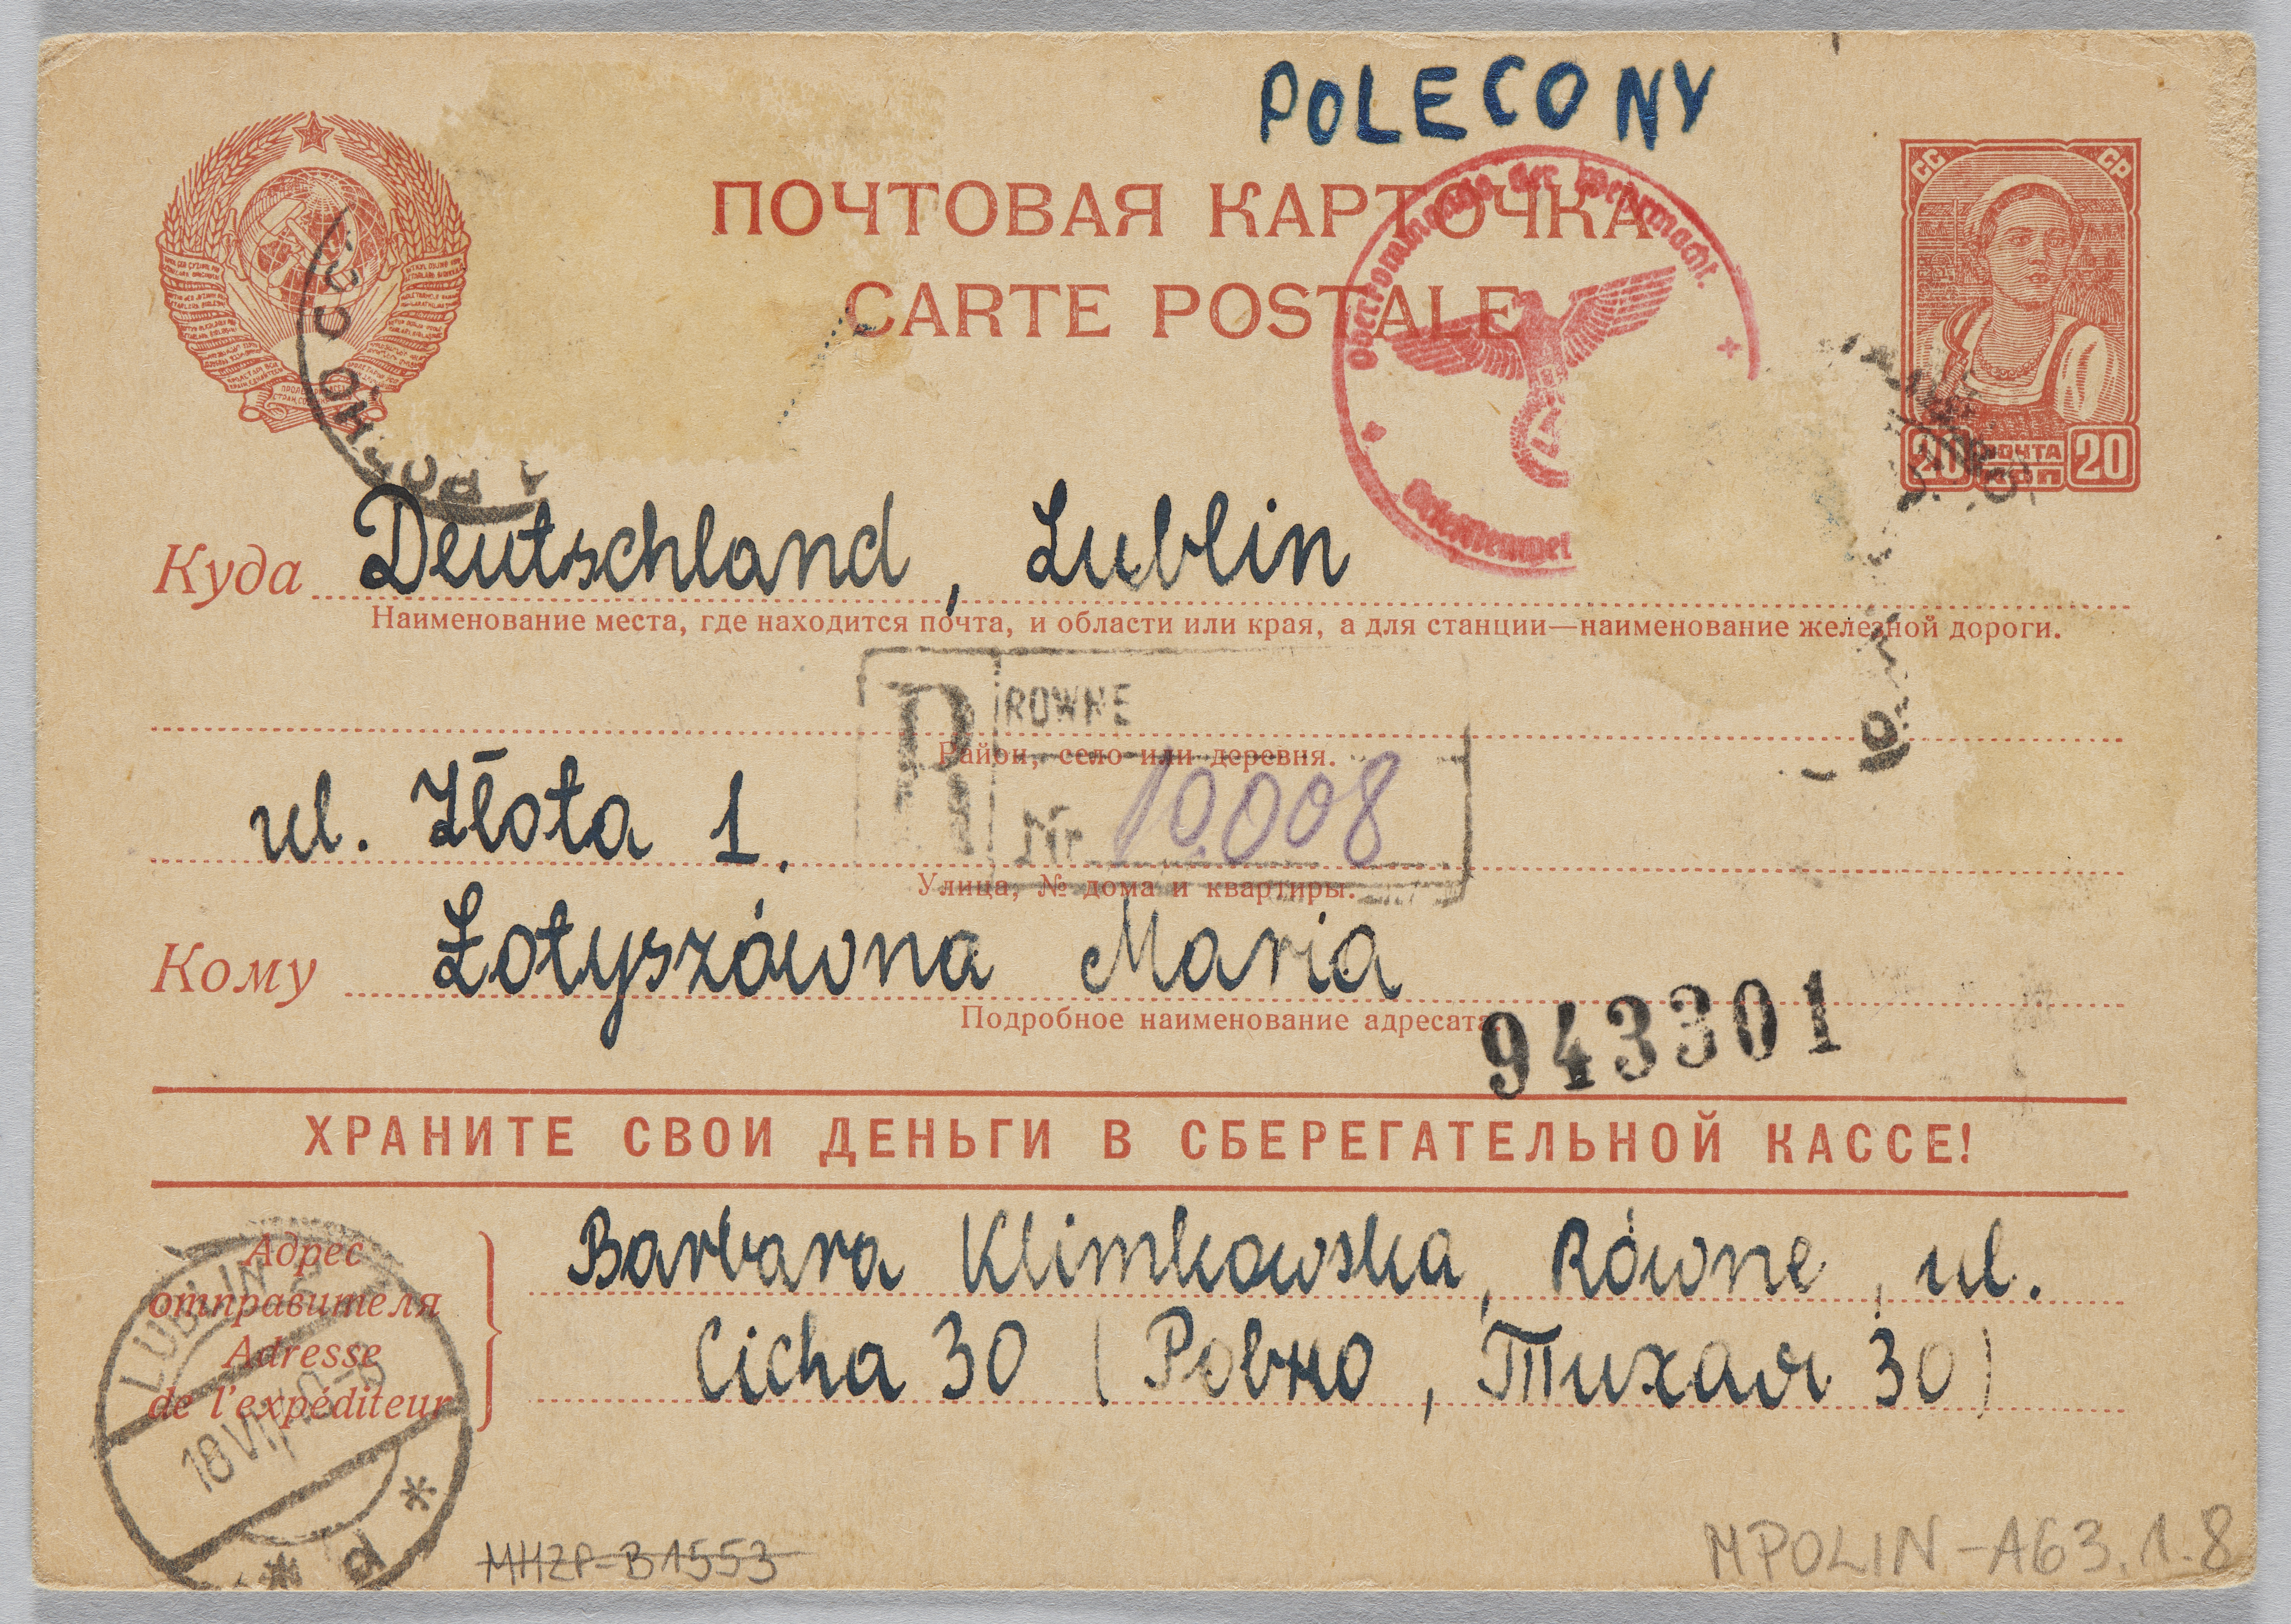 POLECONY
ПОЧТОВАЯ КАРТОЧКА
CARTE POSTALE
Oberkommando der Wehrmacht
Briefstempel
СС СР
20 ПОЧТА 20
КОП
Куда Deutschland, Lublin
Наименование места, где находится почта, и области или края, а для станции—наименование железной дороги.
R ROWNE
Район, село или деревня.
ul. Złota 1.
Nr 10.008
Улица, № дома и квартиры.
Кому Łotyszówna Maria
Подробное наименование адресата.
943301
ХРАНИТЕ СВОИ ДЕНЬГИ В СБЕРЕГАТЕЛЬНОЙ КАССЕ!
Адрес
отправителя
Adresse
de l'expéditeur
Barbara Klimkowska, Równe, ul.
Cicha 30 (Ровно, Тихая 30)
LUBLIN
18 VII
MHŻP-B1553
MPOLIN-A63.1.8